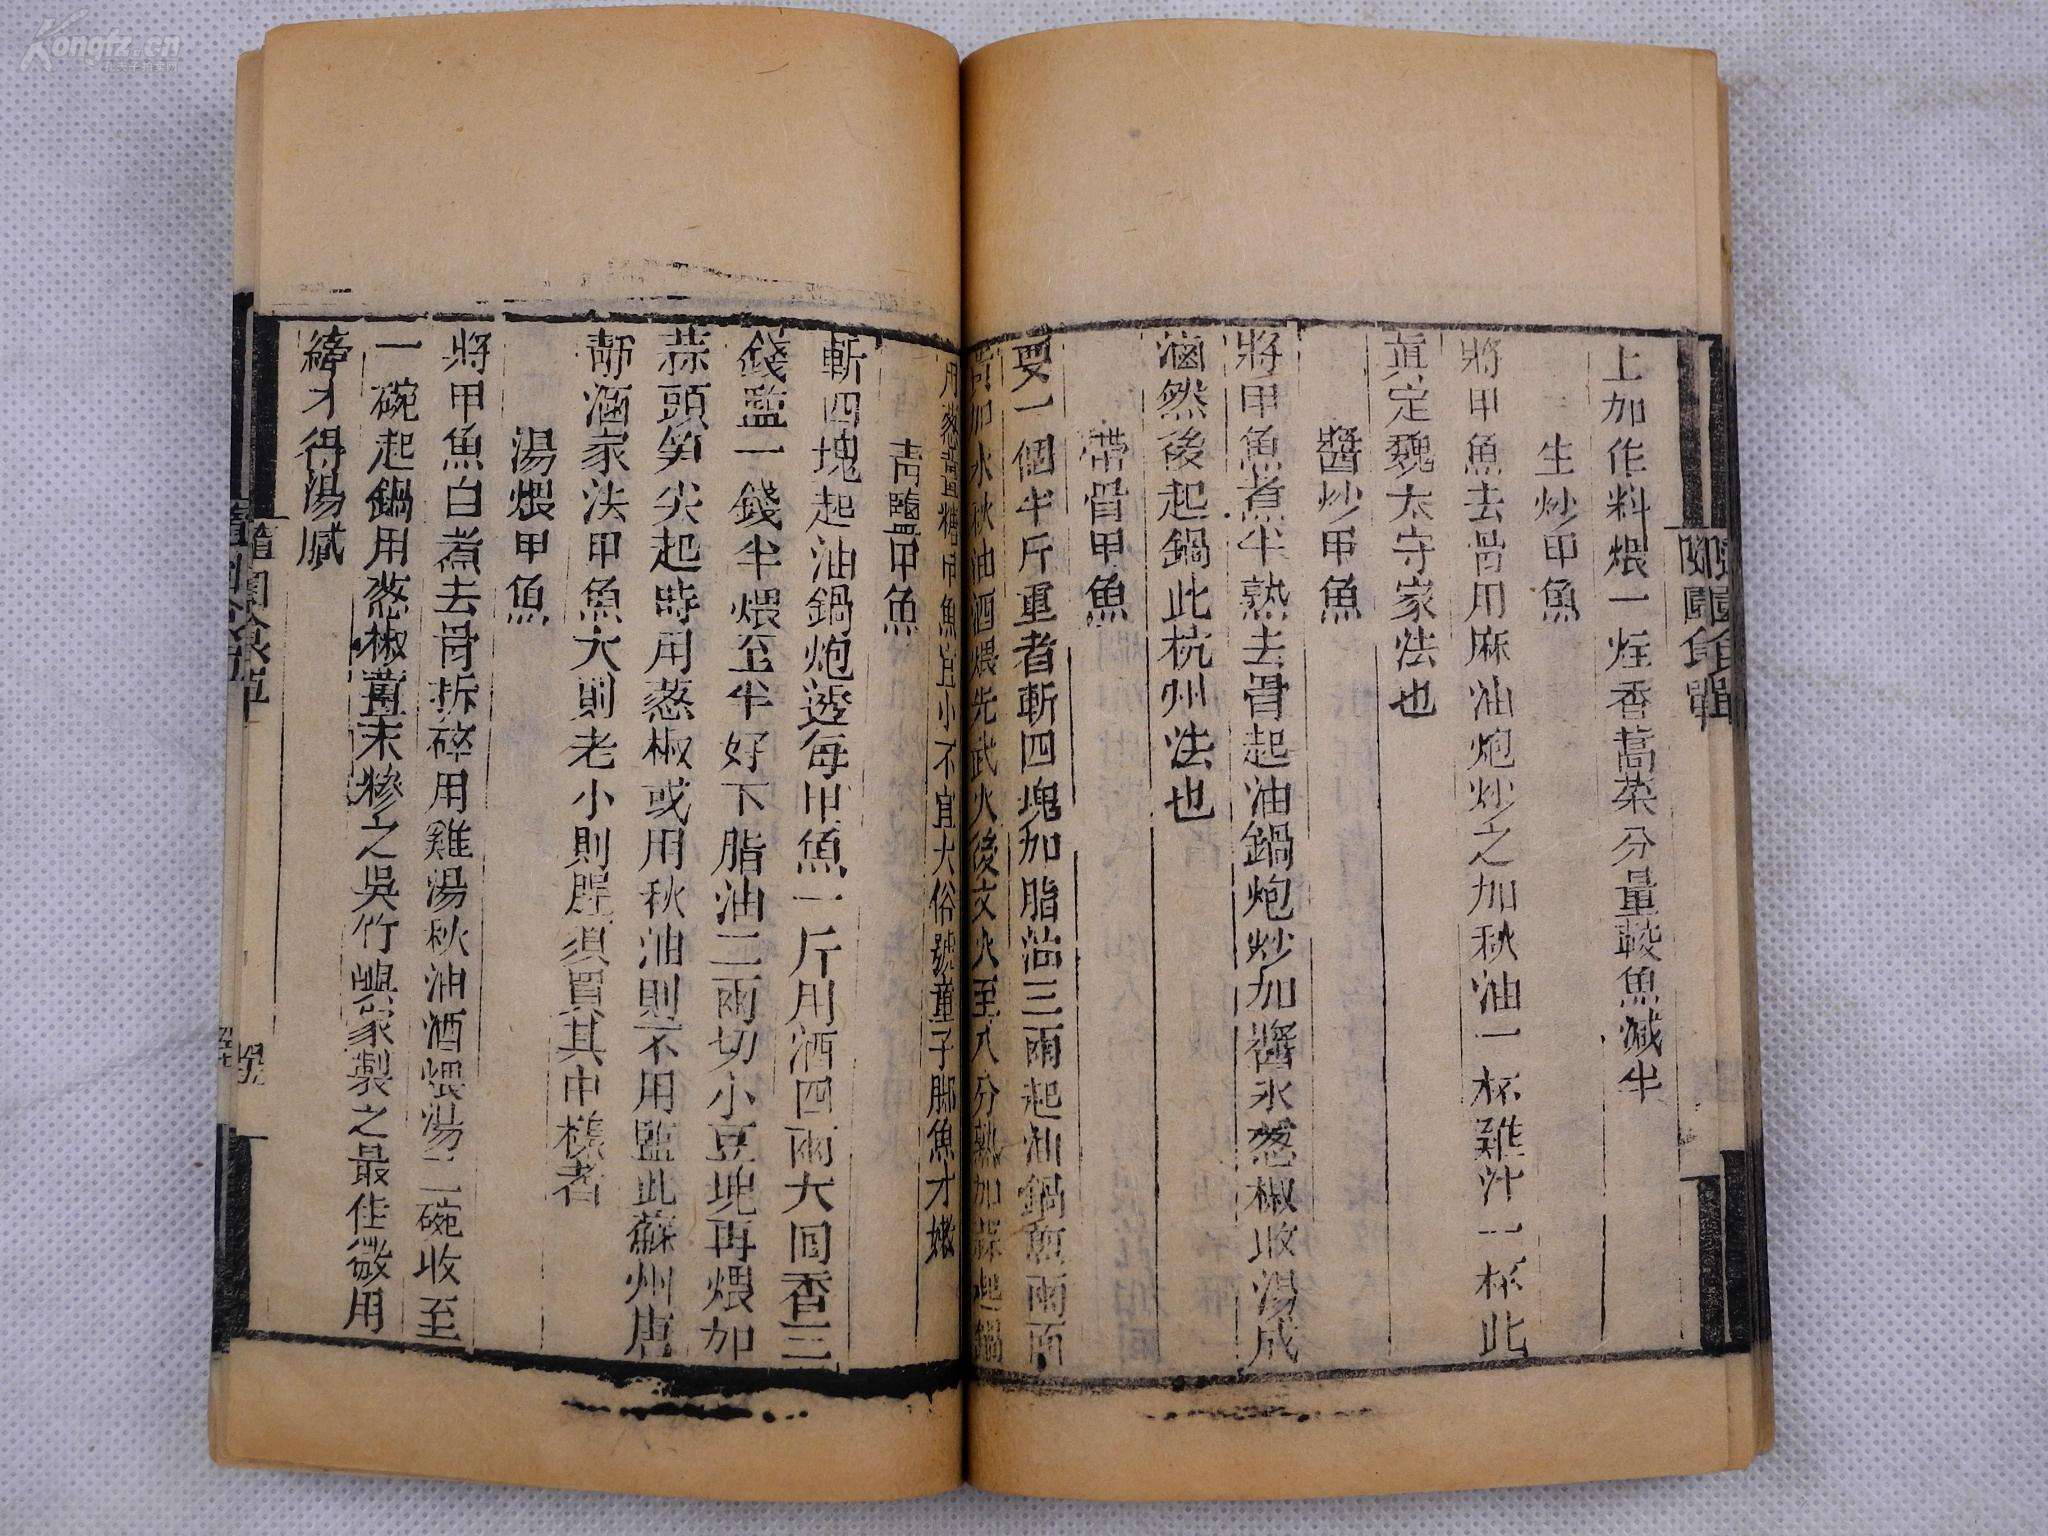 上加作料煨一炷香蒿菜分量較魚減半
生炒甲魚
將甲魚去骨用麻油炮炒之加秋油一杯雞汁一杯此
真定魏太守家法也
醬炒甲魚
將甲魚煮半熟去骨起油鍋炮炒加醬水葱椒收湯成
滷然後起鍋此杭州法也
帶骨甲魚
要一個半斤重者斬四塊加脂油三兩起油鍋煎兩面
黃加水秋油酒煨先武火後文火至八分熟加蒜起鍋
用葱薑糖甲魚宜小不宜大俗號童子脚魚才嫩
青鹽甲魚
斬四塊起油鍋炮透每甲魚一斤用酒四兩大回香三
錢盬一錢半煨至半好下脂油二兩切小豆塊再煨加
蒜頭笋尖起時用葱椒或用秋油則不用盬此蘇州唐
靜涵家法甲魚大則老小則腥須買其中樣者
湯煨甲魚
將甲魚白煮去骨拆碎用雞湯秋油酒煨湯二碗收至
一碗起鍋用葱椒薑末糝之吳竹嶼家製之最佳微用
縴才得湯膩
隨園食單
Kongfz.cn
孔夫子拍卖网